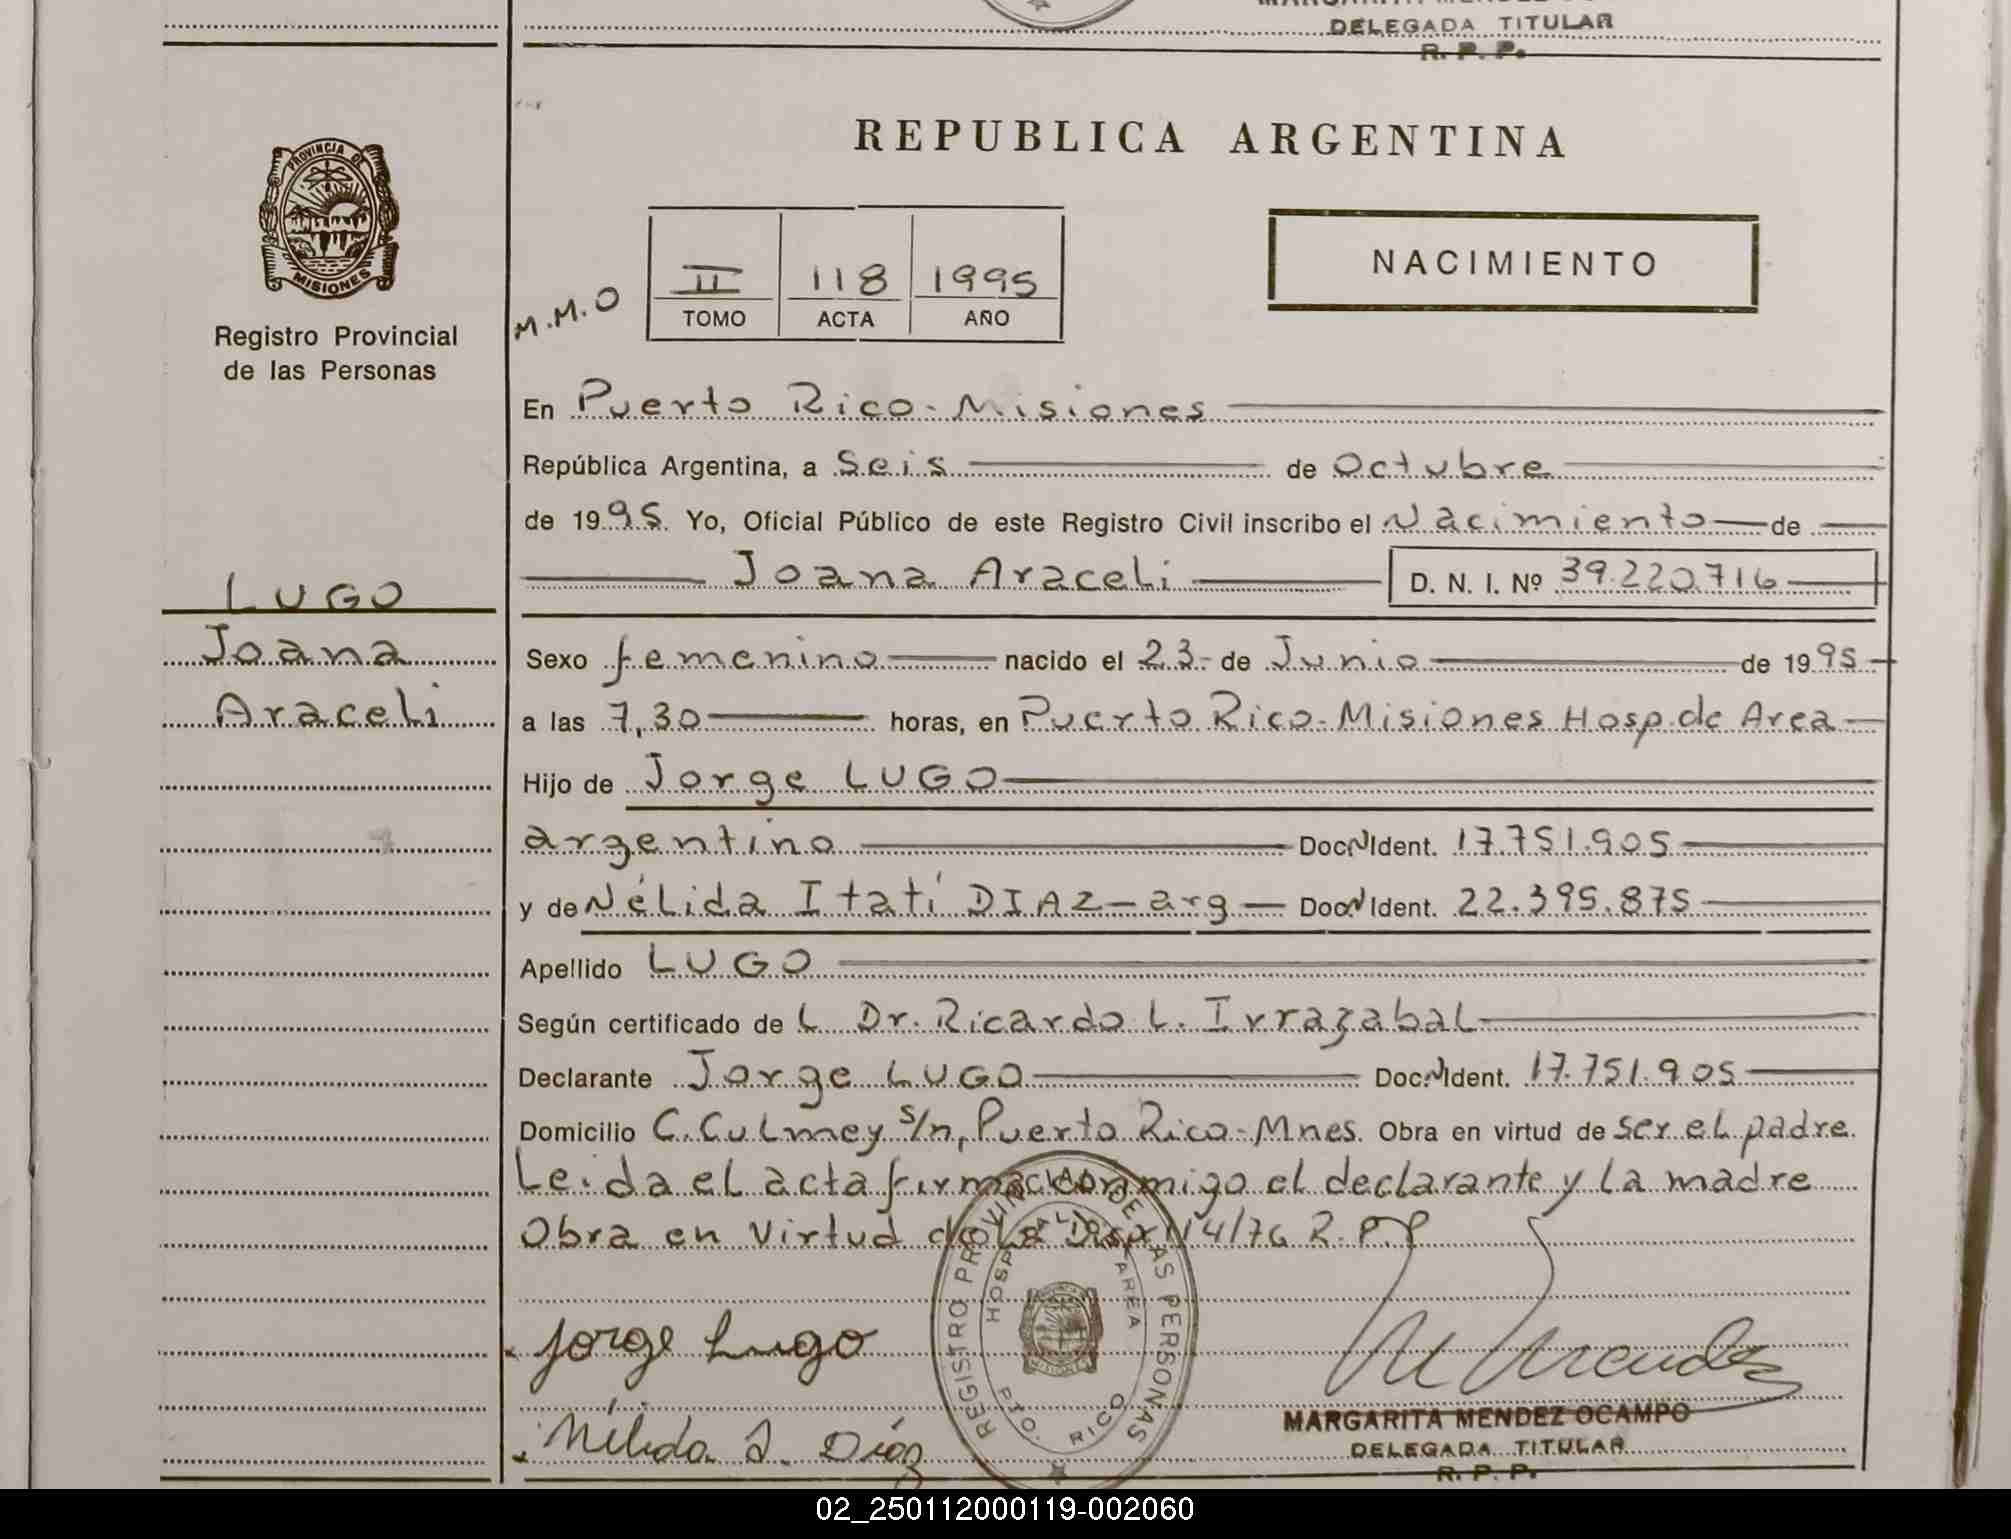 DELEGADA TITULAR
R. P. P.
PROVINCIA DE
MISIONES
Registro Provincial
de las Personas
REPUBLICA ARGENTINA
NACIMIENTO
M.M.O
II 118 1995
TOMO ACTA AÑO
En Puerto Rico - Misiones
República Argentina, a Seis de Octubre
de 1995 Yo, Oficial Público de este Registro Civil inscribo el Nacimiento de
Joana Araceli D. N. I. Nº 39.220.716
LUGO
Joana
Araceli
Sexo femenino nacido el 23 de Junio de 1995
a las 7,30 horas, en Puerto Rico - Misiones Hosp. de Area
Hijo de Jorge LUGO
argentino Doc N Ident. 17.751.905
y de Nélida Itatí DIAZ - arg Doc N Ident. 22.395.875
Apellido LUGO
Según certificado de L Dr. Ricardo L. Irrazabal
Declarante Jorge LUGO Doc. N Ident. 17.751.905
Domicilio C. Culmey s/n, Puerto Rico - Mnes. Obra en virtud de ser el padre.
Leida el acta firma conmigo el declarante y la madre
Obra en Virtud de la Disp 114/76 R.P.P
REGISTRO PROVINCIAL DE LAS PERSONAS
HOSPITAL DE AREA
PTO. RICO
Jorge Lugo
Nélida I. Díaz
M Mendez
MARGARITA MENDEZ OCAMPO
DELEGADA TITULAR
R. P. P.
02_250112000119-002060